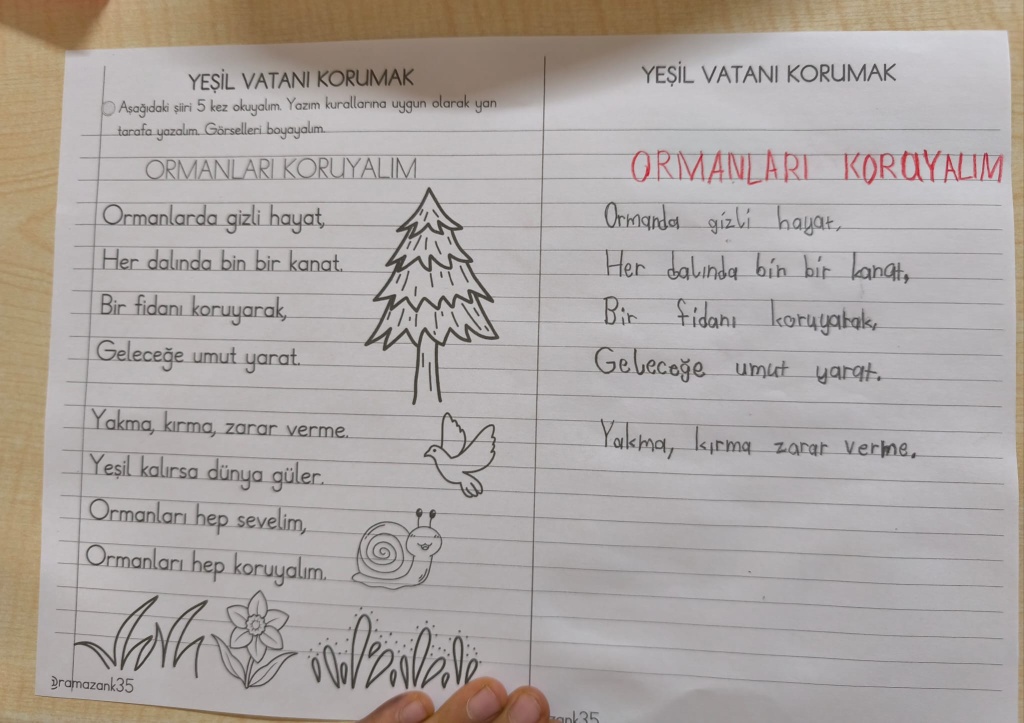 YEŞİL VATANI KORUMAK
Aşağıdaki şiiri 5 kez okuyalım. Yazım kurallarına uygun olarak yan
tarafa yazalım. Görselleri boyayalım.
ORMANLARI KORUYALIM
Ormanlarda gizli hayat,
Her dalında bin bir kanat.
Bir fidanı koruyarak,
Geleceğe umut yarat.
Yakma, kırma, zarar verme.
Yeşil kalırsa dünya güler.
Ormanları hep sevelim,
Ormanları hep koruyalım.
Dramazank35
YEŞİL VATANI KORUMAK
ORMANLARI KORUYALIM
Ormanda gizli hayat,
Her dalında bin bir kanat,
Bir fidanı koruyarak,
Geleceğe umut yarat.
Yakma, kırma zarar verme.